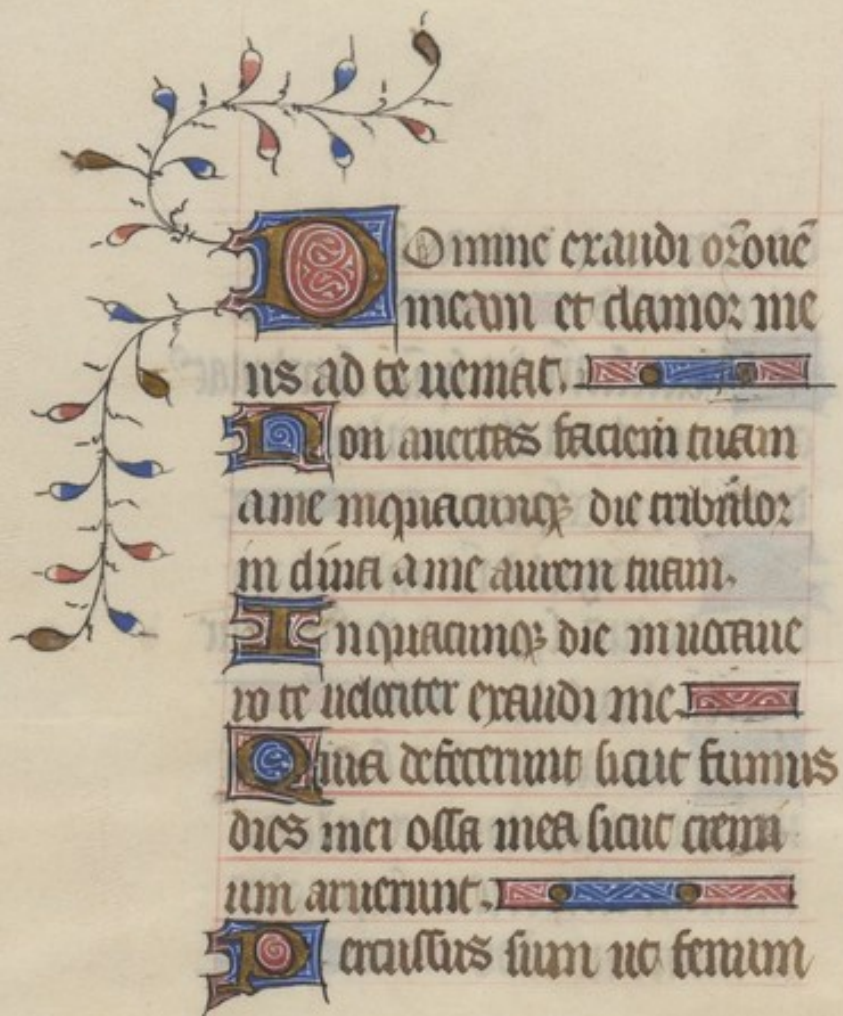 Domine exaudi or̄onē
meam et clamor me
us ad te ueniat.
Non auertas faciem tuam
a me inquacunqꝫ die tribūlor
in clina a me aurem tuam.
Inquacunqꝫ die in uocaue
ro te uelociter exaudi me.
Quia defecerunt sicut fumus
dies mei ossa mea sicut cremi
um aruerunt.
Percussus sum ut fenum